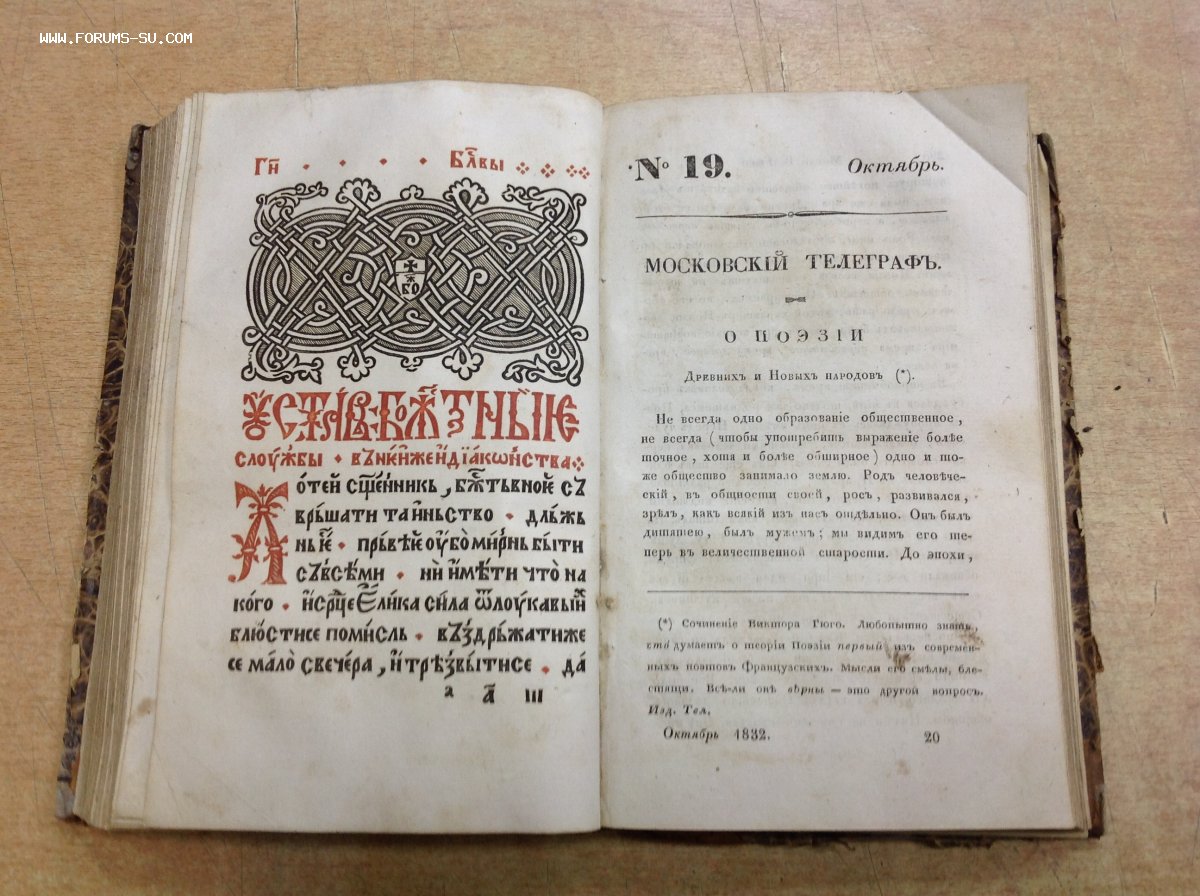 WWW.FORUMS-SU.COM
Гн҃ · · · · Бл҃вы
БО
ОУСТАВЬ БОЖ҃ТВНЫІЕ
СЛОУЖБЫ · ВЪ НЮИЖЕ И ДІАКОНСТВА
Хотей сщ҃енникь, бж҃тьвною съ
врьшати таиньство · дльжь
нь · прьвѣ оубо мирнь быти
съ всѣми · ни имѣти что на
кого · и срц҃е елика сила ѿ лоукавыи
блюстисе помисль · въздрьжатиже
се мало с вечера, и трѣзвытисе · да
а а҃ III
№ 19. Октябрь.
МОСКОВСКІЙ ТЕЛЕГРАФЪ.
О ПОЭЗІИ
Древнихъ и Новыхъ народовъ (*).
Не всегда одно образованіе общественное,
не всегда (чтобы употребить выраженіе болѣе
точное, хотя и болѣе обширное) одно и то-
же общество занимало землю. Родъ человѣче-
скій, въ общности своей, росъ, развивался,
зрѣлъ, какъ всякій изъ насъ отдѣльно. Онъ былъ
дитятею, былъ мужемъ; мы видимъ его те-
перь въ величественной старости. До эпохи,
(*) Сочиненіе Виктора Гюго. Любопытно знать,
что думаетъ о теоріи Поэзіи первый изъ современ-
ныхъ поэтовъ Французскихъ. Мысли его смѣлы, бле-
стящи. Всѣ-ли онѣ вѣрны — это другой вопросъ.
Изд. Тел.
Октябрь 1832. 20